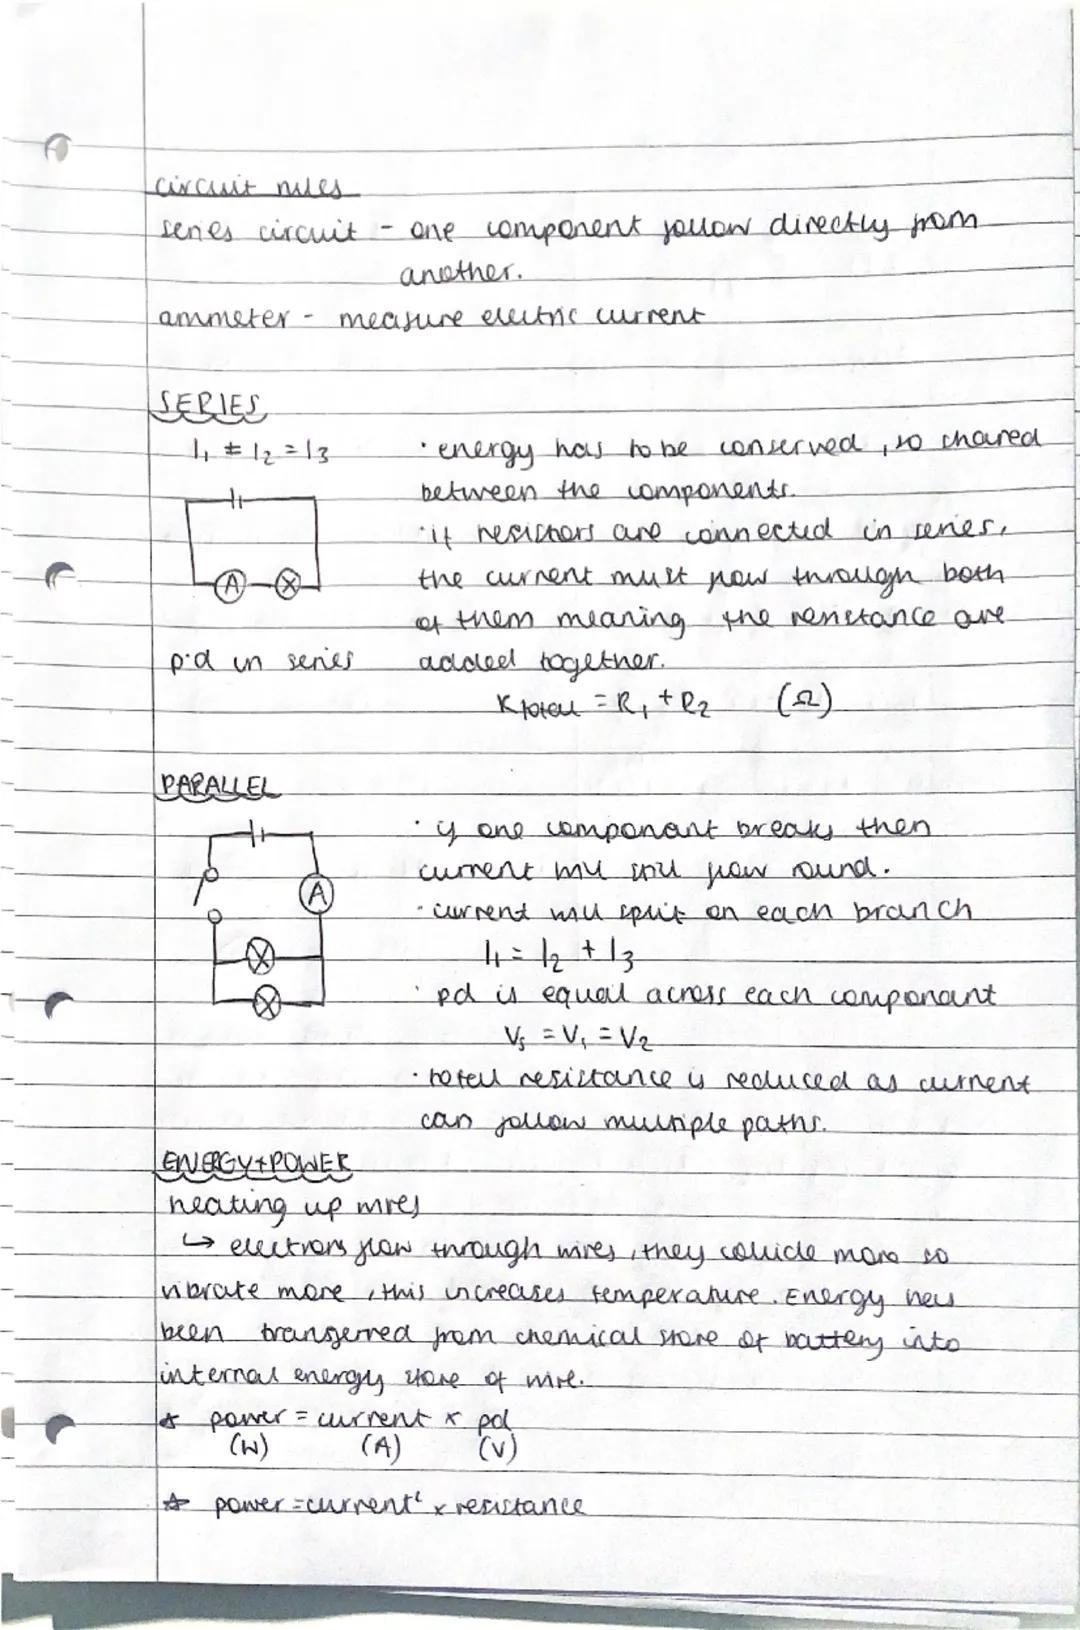 circuit rules
series circuit - one component follow directly from
another.
ammeter - measure electric current
SERIES
I₁ = I₂ = I₃
· energy has to be conserved, so shared
between the components.
A
· if resistors are connected in series,
the current must flow through both
of them meaning the resistance are
p.d in series
added together.
R total = R₁ + R₂ (Ω)
PARALLEL
· if one componant breaks then
current will still flow round.
A
· current will split on each branch
I₁ = I₂ + I₃
· pd is equal across each componant
Vs = V₁ = V₂
· total resistance is reduced as current
can follow multiple paths.
ENERGY+POWER
heating up wires
↳ electrons flow through wires, they collide more so
vibrate more, this increases temperature. Energy has
been transferred from chemical store of battery into
internal energy store of wire.
☆ power = current x pd
(W) (A) (V)
☆ power = current² x resistance